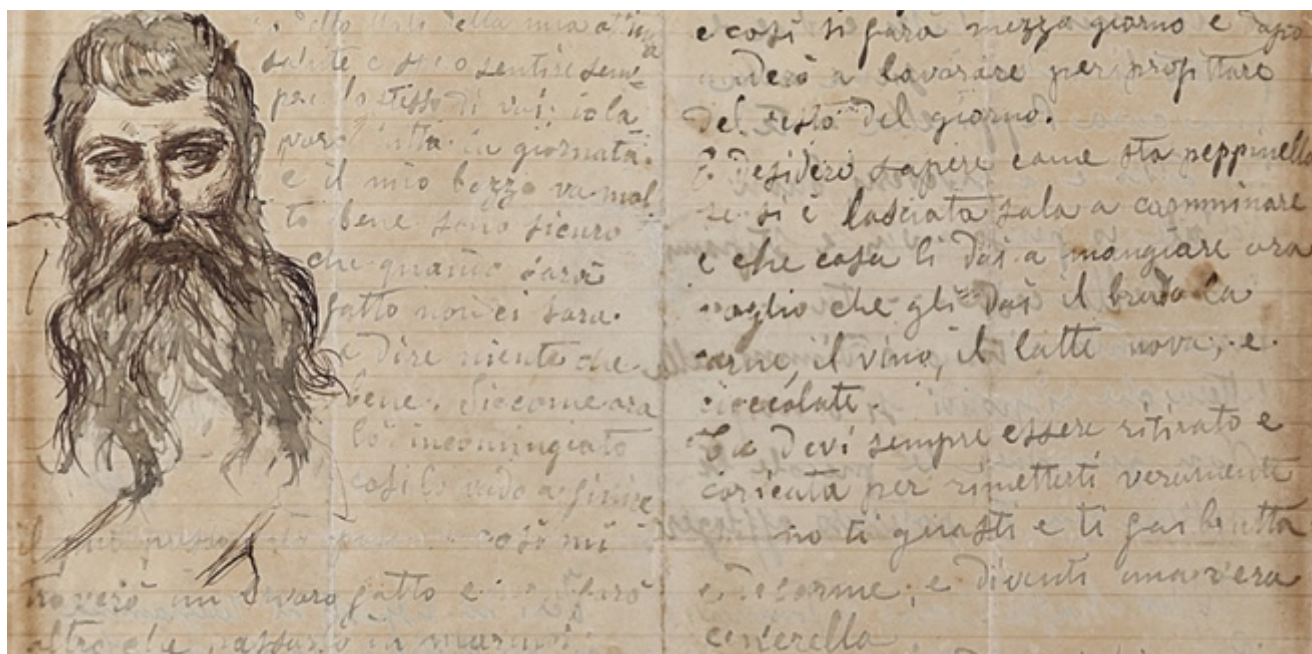 della mia
salute e sentire sem
pre lo stesso di voi: io la
voro tutta la giornata.
e il mio bozzo va mol
to bene sono sicuro
che quando sarà
fatto non ci sara.
a Dire niente che
bene. Siccome ora
lo incomingiato
così lo vado a finire
il più presto così mi
troverò un lavoro fatto e
altro che passarlo in marmo;
e così si farà mezzo giorno e dopo
anderò a lavorare per profittare
del resto del giorno.
Desidero sapere come sta peppinella
se si è lasciata sola a camminare
e che cosa li dai a mangiare ora
voglio che gli dai il brodo la
carne, il vino, il latte nova, e
cioccolate.
Tu devi sempre essere ritirato e
coricata per rimetterti veramente
no ti guasti e ti fai brutta
e deforme, e diventi una vera
cenerella